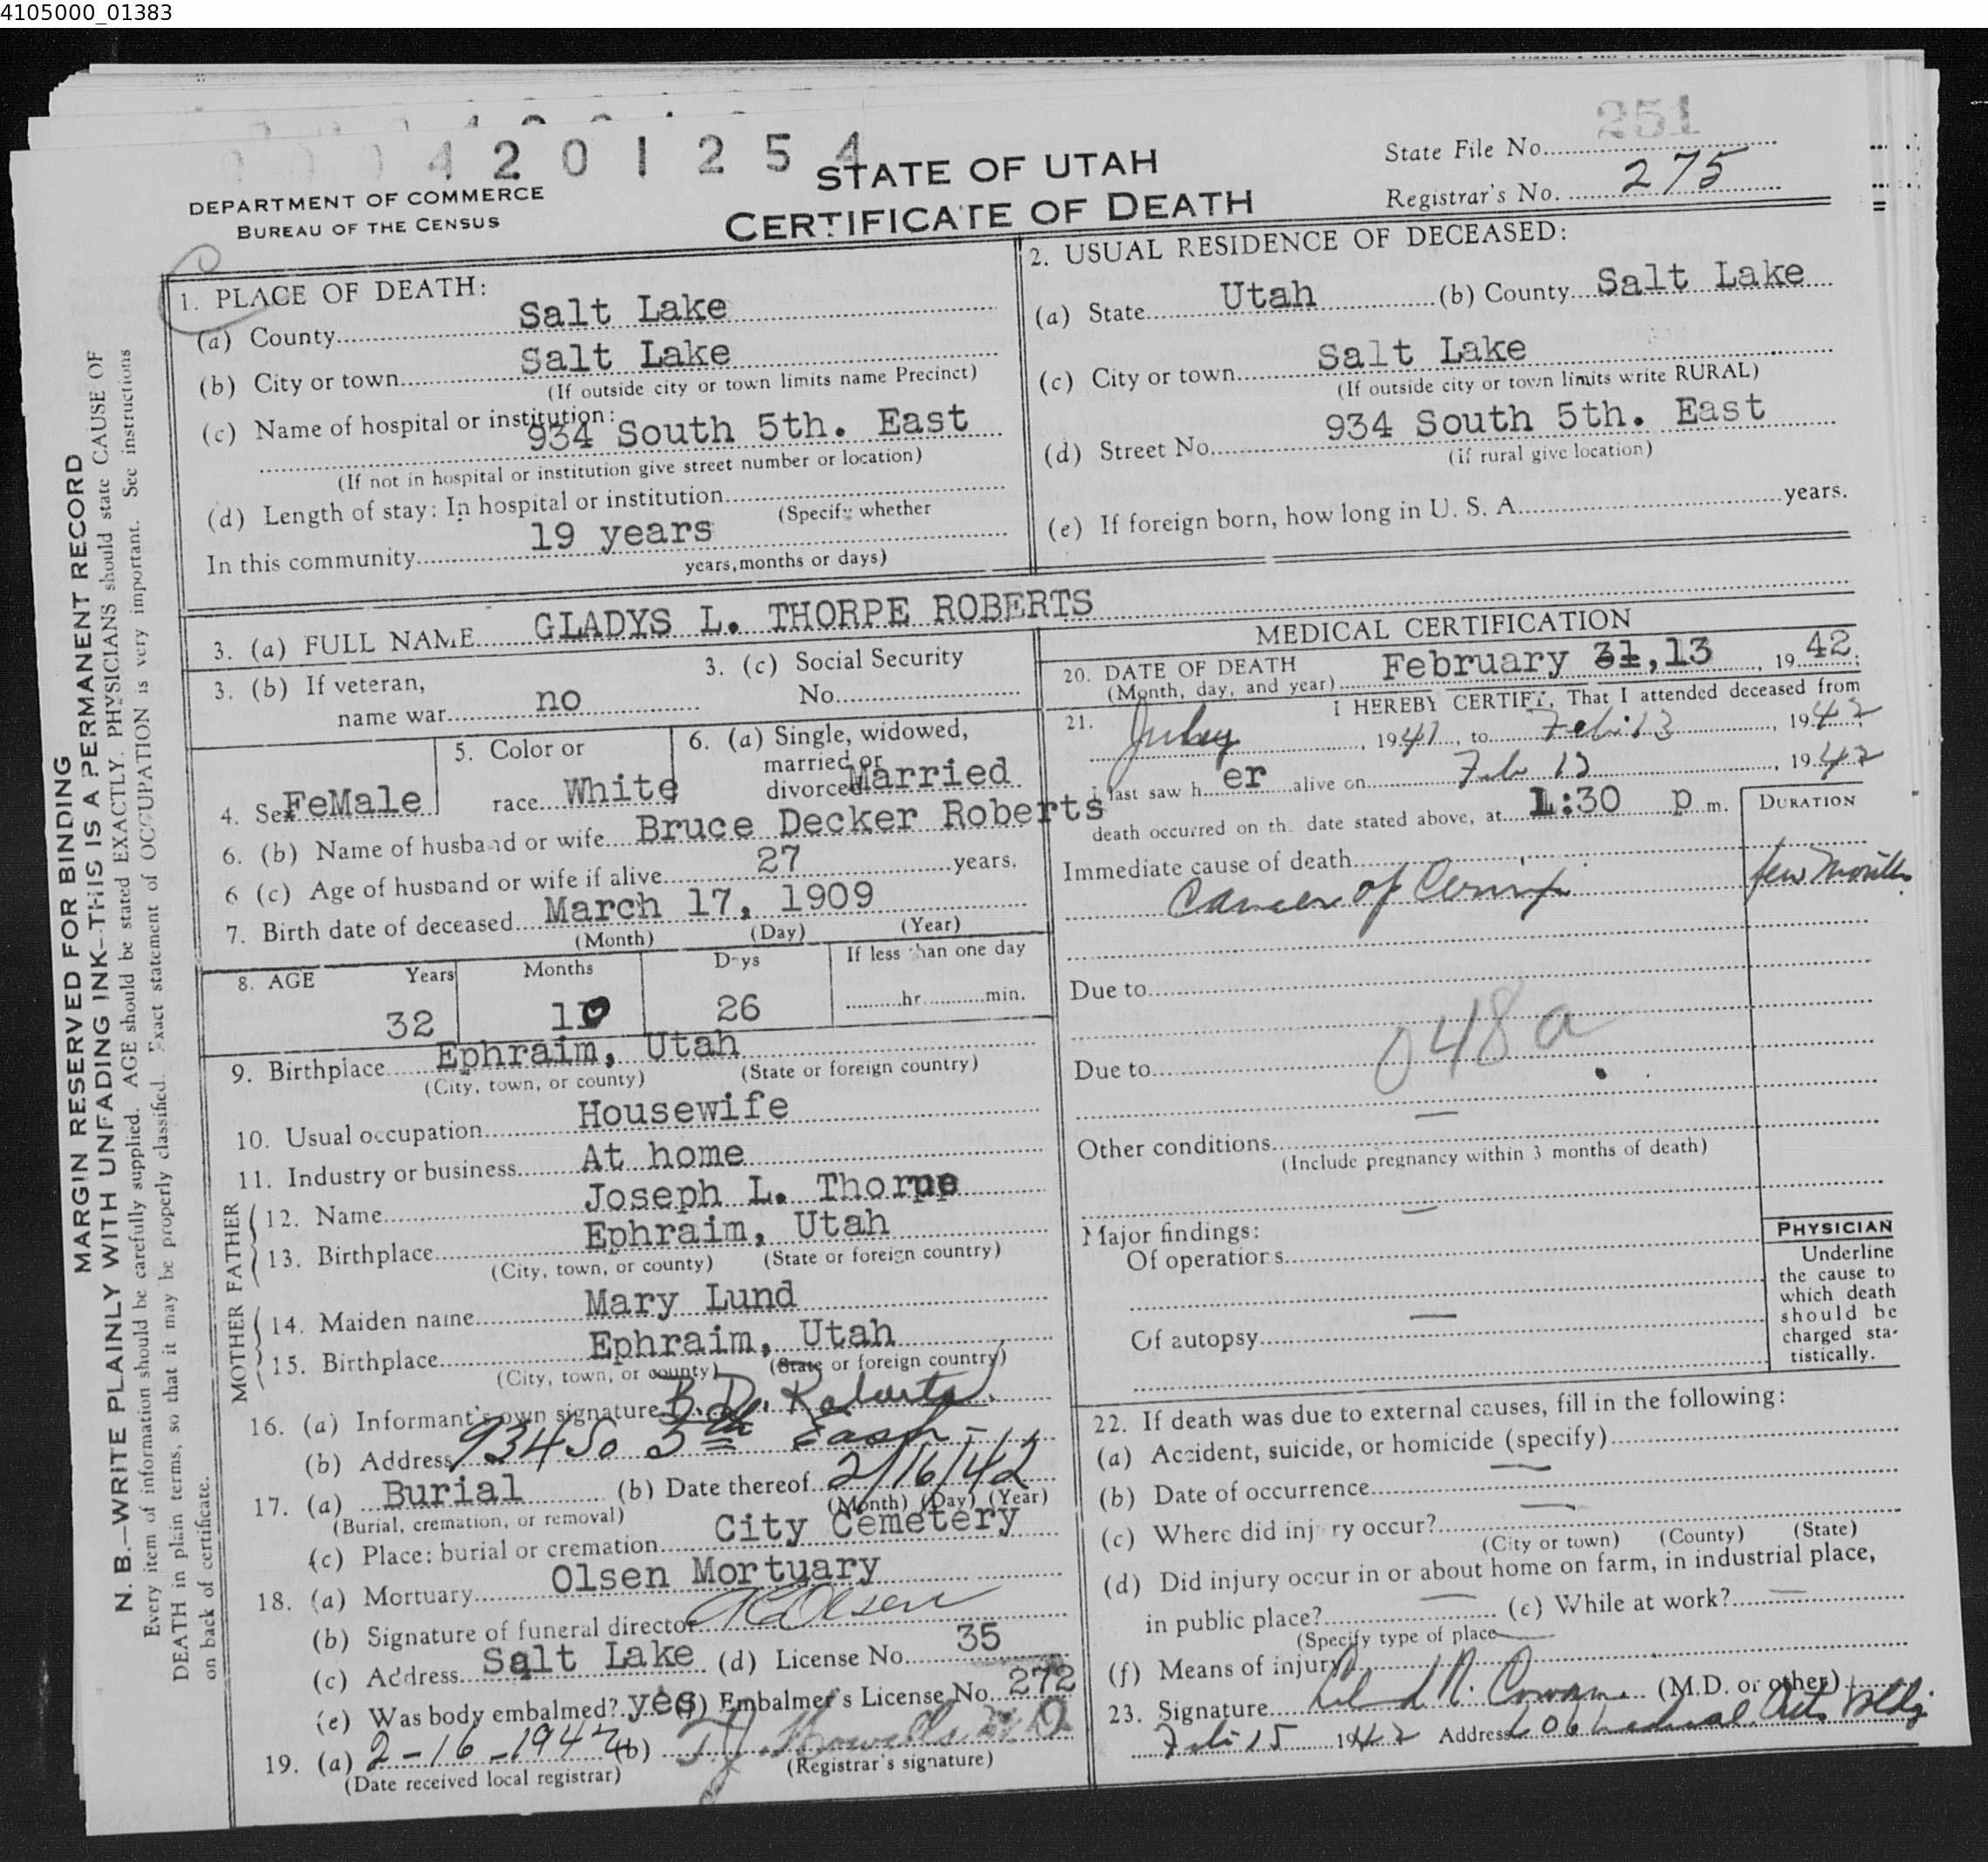 4105000_01383
0 0 0 4 2 0 1 2 5 4
STATE OF UTAH
CERTIFICATE OF DEATH
DEPARTMENT OF COMMERCE
BUREAU OF THE CENSUS
State File No. 251
Registrar's No. 275
1. PLACE OF DEATH:
(a) County Salt Lake
(b) City or town Salt Lake
(If outside city or town limits name Precinct)
(c) Name of hospital or institution:
934 South 5th. East
(If not in hospital or institution give street number or location)
(d) Length of stay: In hospital or institution
(Specify whether
In this community 19 years
years, months or days)
2. USUAL RESIDENCE OF DECEASED:
(a) State Utah (b) County Salt Lake
(c) City or town Salt Lake
(If outside city or town limits write RURAL)
(d) Street No. 934 South 5th. East
(if rural give location)
(e) If foreign born, how long in U. S. A. years.
3. (a) FULL NAME GLADYS L. THORPE ROBERTS
3. (b) If veteran,
name war no
3. (c) Social Security
No.
4. Sex FeMale
5. Color or
race White
6. (a) Single, widowed,
married or
divorced Married
6. (b) Name of husband or wife Bruce Decker Roberts
6 (c) Age of husband or wife if alive 27 years.
7. Birth date of deceased March 17, 1909
(Month) (Day) (Year)
8. AGE Years Months Days If less than one day
32 10 26 hr. min.
9. Birthplace Ephraim, Utah
(City, town, or county) (State or foreign country)
10. Usual occupation Housewife
11. Industry or business At home
FATHER
12. Name Joseph L. Thorpe
13. Birthplace Ephraim, Utah
(City, town, or county) (State or foreign country)
MOTHER
14. Maiden name Mary Lund
15. Birthplace Ephraim, Utah
(City, town, or county) (State or foreign country)
16. (a) Informant's own signature B. D. Roberts
(b) Address 934 So 5th East
17. (a) Burial (b) Date thereof 2/16/42
(Burial, cremation, or removal) (Month) (Day) (Year)
(c) Place: burial or cremation City Cemetery
18. (a) Mortuary Olsen Mortuary
(b) Signature of funeral director Olsen
(c) Address Salt Lake (d) License No. 35
(e) Was body embalmed? yes (f) Embalmer's License No. 272
19. (a) 2-16-1942 (b)
(Date received local registrar) (Registrar's signature)
MEDICAL CERTIFICATION
20. DATE OF DEATH
(Month, day, and year) February 31, 13, 1942;
21. I HEREBY CERTIFY, That I attended deceased from
July, 1941, to Feb. 13, 1942;
I last saw her alive on Feb 13, 1942
death occurred on the date stated above, at 1:30 p m.
DURATION
Immediate cause of death
Cancer of Cervix few months
Due to
048a
Due to
Other conditions
(Include pregnancy within 3 months of death)
Major findings:
Of operations
Of autopsy
PHYSICIAN
Underline
the cause to
which death
should be
charged sta-
tistically.
22. If death was due to external causes, fill in the following:
(a) Accident, suicide, or homicide (specify)
(b) Date of occurrence
(c) Where did injury occur?
(City or town) (County) (State)
(d) Did injury occur in or about home on farm, in industrial place,
in public place? (e) While at work?
(Specify type of place
(f) Means of injury
23. Signature (M.D. or other)
Feb 15 1942 Address Medical Arts Bldg
MARGIN RESERVED FOR BINDING
N. B.—WRITE PLAINLY WITH UNFADING INK—THIS IS A PERMANENT RECORD
Every item of information should be carefully supplied. AGE should be stated EXACTLY. PHYSICIANS should state CAUSE OF
DEATH in plain terms, so that it may be properly classified. Exact statement of OCCUPATION is very important. See instructions
on back of certificate.